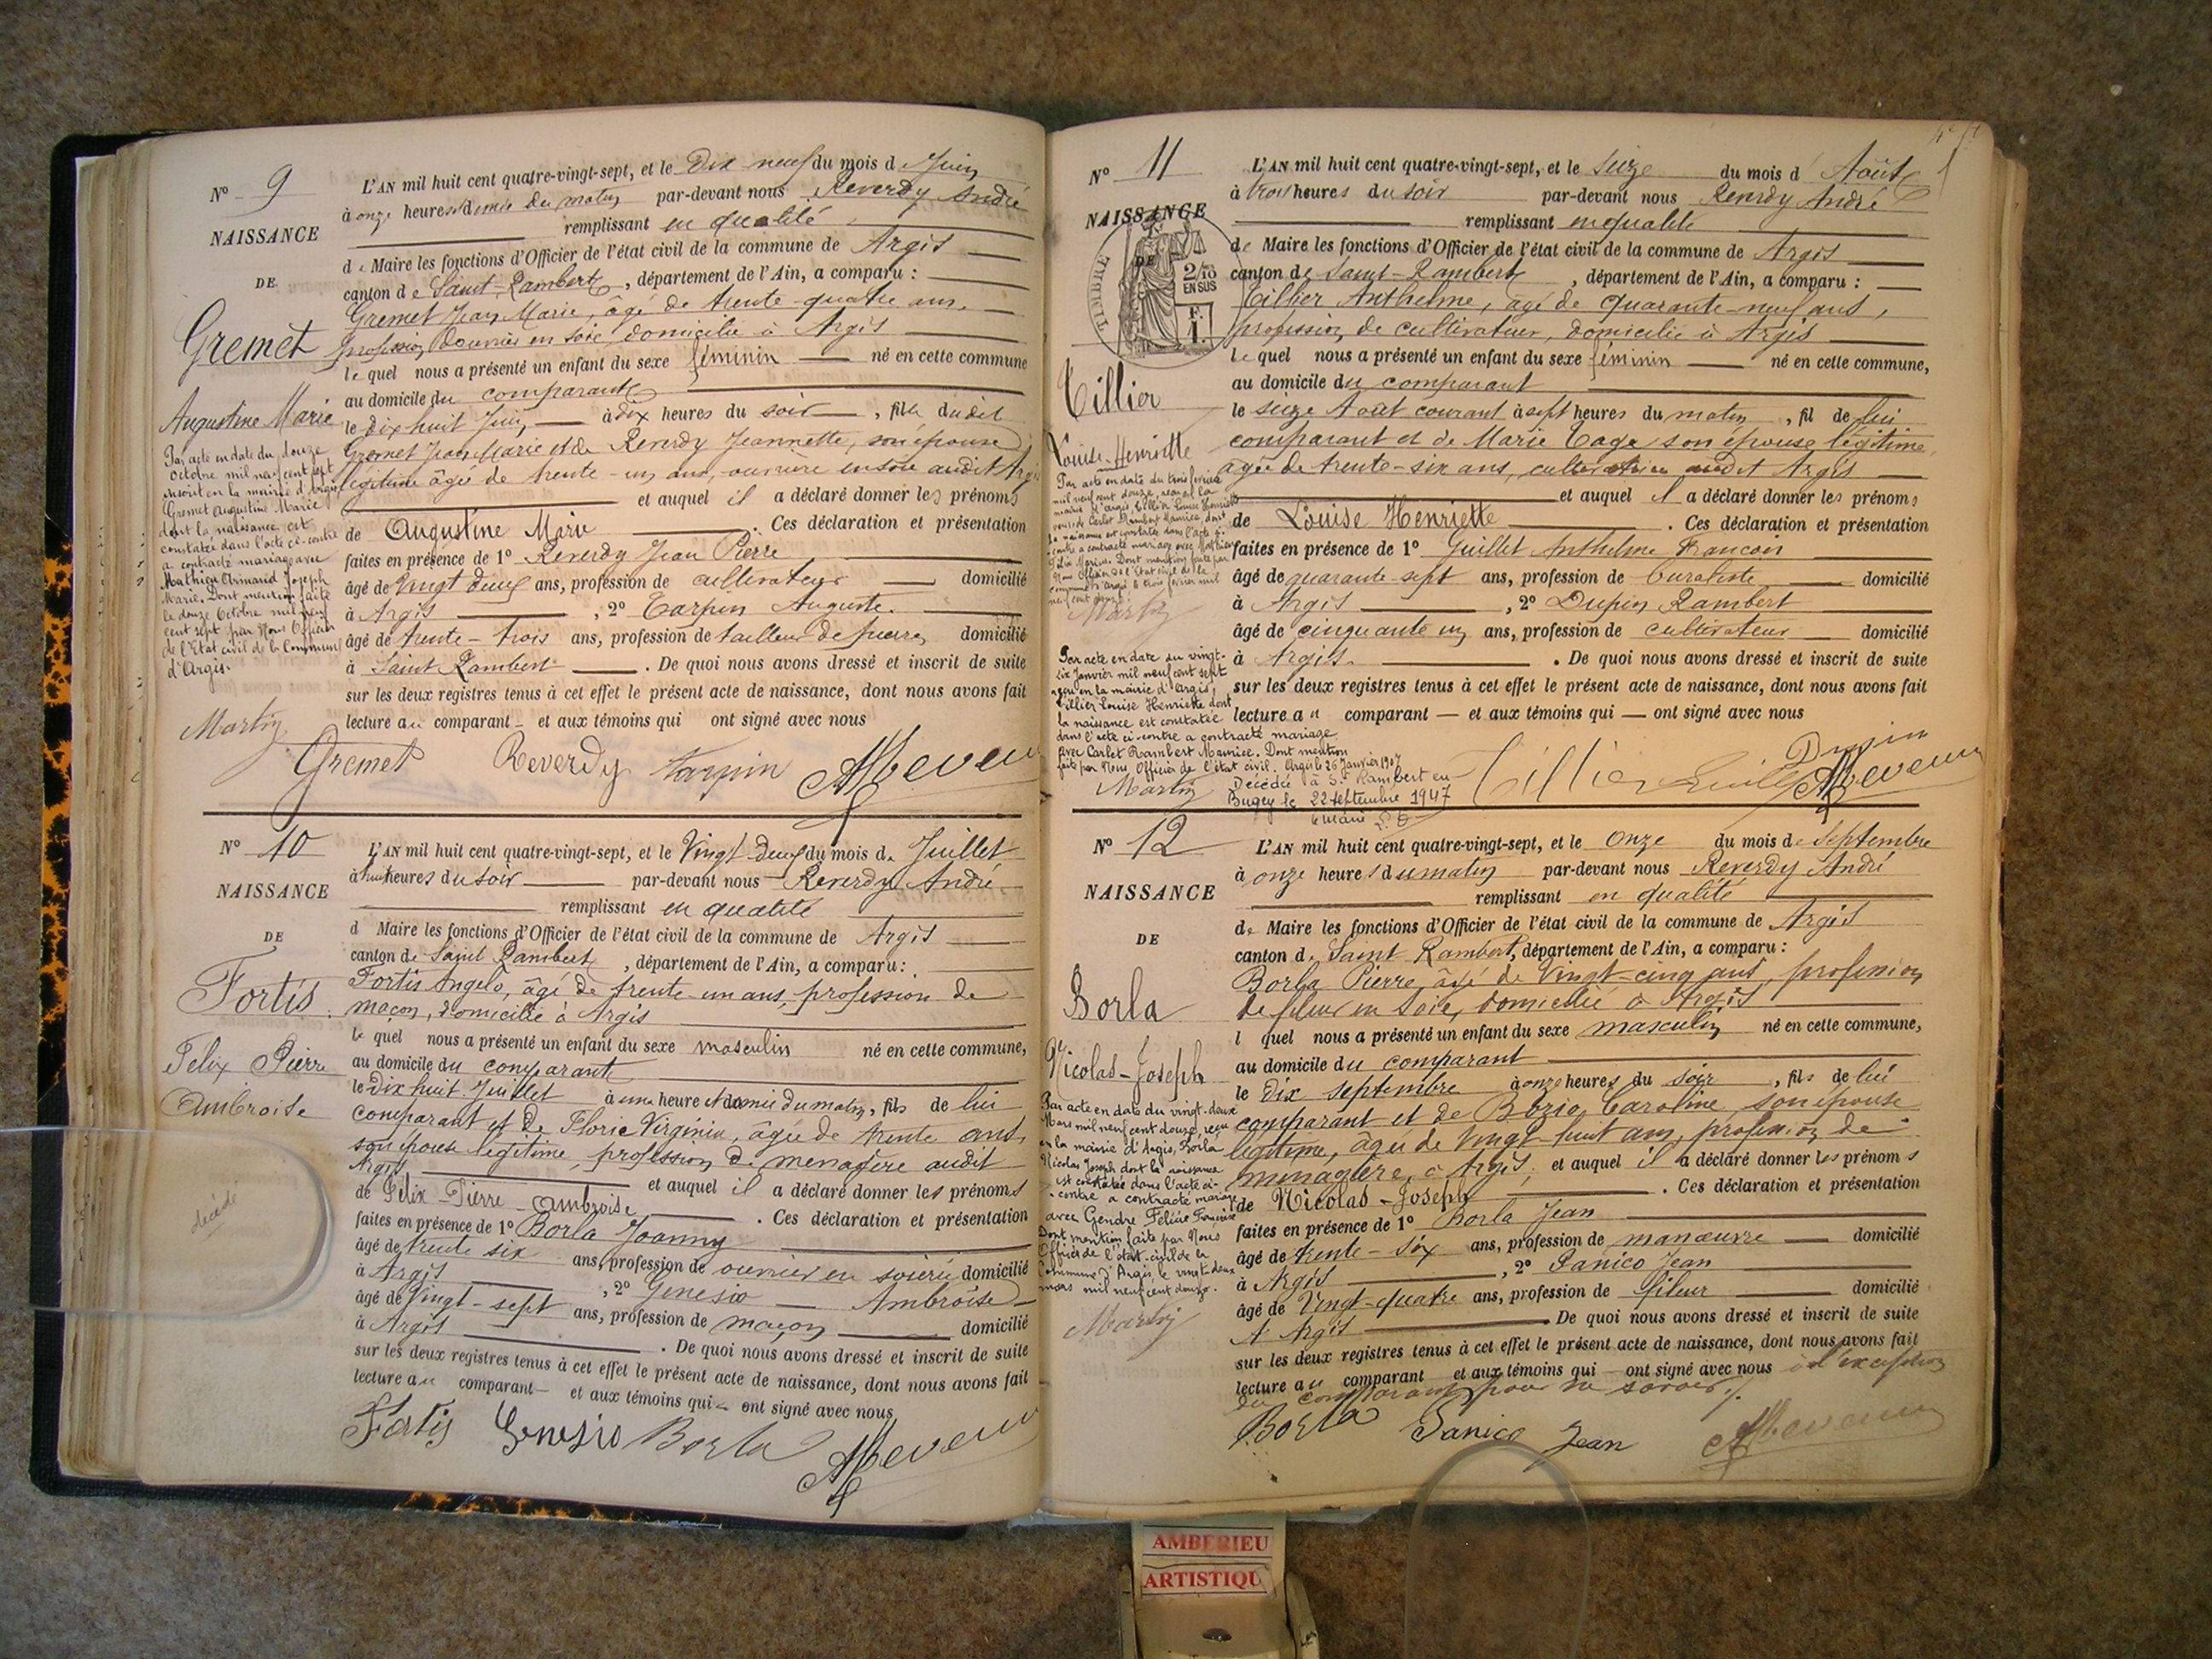 N° 9
NAISSANCE
DE
Gremet
Augustine Marie
Par acte en date du douze
octobre mil neuf cent sept
inscrit en la mairie d'Argis
Gremet Augustine Marie
dont la naissance est
constatée dans l'acte ci-contre
a contracté mariage avec
Mathieu Armand Joseph
Marie. Dont mention faite
le douze Octobre mil neuf
cent sept par Nous Officier
de l'Etat civil de la Commune
d'Argis.
Martin
L'AN mil huit cent quatre-vingt-sept, et le dix neuf du mois d Juin
à onze heures et demie du matin par-devant nous Reverdy André
remplissant en qualité
de Maire les fonctions d'Officier de l'état civil de la commune de Argis
canton de Saint-Rambert, département de l'Ain, a comparu :
Gremet Jean Marie, âgé de trente-quatre ans,
profession d'ouvrier en soie, domicilié à Argis
lequel nous a présenté un enfant du sexe féminin né en cette commune
au domicile du comparant
le dix huit Juin à dix heures du soir, fille dudit
Gremet Jean Marie et de Reverdy Jeannette, son épouse
légitime âgée de trente-un ans, ouvrière en soie audit Argis
et auquel il a déclaré donner les prénoms
de Augustine Marie. Ces déclaration et présentation
faites en présence de 1° Reverdy Jean Pierre
âgé de vingt deux ans, profession de cultivateur domicilié
à Argis, 2° Tarpin Auguste.
âgé de trente-trois ans, profession de tailleur de pierre domicilié
à Saint Rambert. De quoi nous avons dressé et inscrit de suite
sur les deux registres tenus à cet effet le présent acte de naissance, dont nous avons fait
lecture au comparant et aux témoins qui ont signé avec nous
Gremet Reverdy Tarpin
N° 10
NAISSANCE
DE
Fortis
Félix Pierre
Ambroise
décédé
L'AN mil huit cent quatre-vingt-sept, et le Vingt deux du mois de Juillet
à huit heures du soir par-devant nous Reverdy André
remplissant en qualité
d Maire les fonctions d'Officier de l'état civil de la commune de Argis
canton de Saint Rambert, département de l'Ain, a comparu :
Fortis Angelo, âgé de trente-un ans, profession de
maçon, domicilié à Argis
lequel nous a présenté un enfant du sexe masculin né en cette commune,
au domicile du comparant
le dix huit Juillet à une heure et demie du matin, fils de lui
comparant et de Florio Virginia, âgée de trente ans,
son épouse légitime, profession de ménagère audit
Argis et auquel il a déclaré donner les prénoms
de Félix-Pierre-Ambroise. Ces déclaration et présentation
faites en présence de 1° Borla Joanny
âgé de trente six ans, profession de ouvrier en soierie domicilié
à Argis, 2° Genesio Ambroise
âgé de Vingt-sept ans, profession de maçon domicilié
à Argis. De quoi nous avons dressé et inscrit de suite
sur les deux registres tenus à cet effet le présent acte de naissance, dont nous avons fait
lecture au comparant et aux témoins qui ont signé avec nous
Fortis Genesio Borla
N° 11
NAISSANCE
DE
TIMBRE
2/10
EN SUS
F.
1.
Tillier
Louise-Henriette
Par acte en date du trois février
mil neuf cent douze, reçu en la
mairie d'Argis, Tillier Louise Henriette
veuve de Carlet Rambert Maurice dont
la naissance est constatée dans l'acte ci-
contre a contracté mariage avec Mathieu
Félix Marius. Dont mention faite par
Nous Officier de l'Etat civil de la
commune d'Argis le trois février mil
neuf cent douze.
Martin
Par acte en date du vingt-
six Janvier mil neuf cent sept
reçu en la mairie d'Argis,
Tillier Louise Henriette dont
la naissance est constatée
dans l'acte ci-contre a contracté mariage
avec Carlet Rambert Maurice. Dont mention
faite par Nous Officier de l'état civil. Argis le 26 Janvier 1907
Martin
Décédée à St Rambert en
Bugey le 22 septembre 1947
le Maire
L'AN mil huit cent quatre-vingt-sept, et le seize du mois d'Août
à trois heures du soir par-devant nous Reverdy André
remplissant en qualité
de Maire les fonctions d'Officier de l'état civil de la commune de Argis
canton de Saint-Rambert, département de l'Ain, a comparu :
Tillier Anthelme, âgé de quarante-neuf ans,
profession de cultivateur, domicilié à Argis
lequel nous a présenté un enfant du sexe féminin né en cette commune,
au domicile du comparant
le seize Août courant à sept heures du matin, fil de lui
comparant et de Marie Cage son épouse légitime
âgée de trente-six ans, cultivatrice audit Argis
et auquel il a déclaré donner les prénoms
de Louise Henriette. Ces déclaration et présentation
faites en présence de 1° Guillet Anthelme François
âgé de quarante-sept ans, profession de buraliste domicilié
à Argis, 2° Dupin Rambert
âgé de cinquante un ans, profession de cultivateur domicilié
à Argis. De quoi nous avons dressé et inscrit de suite
sur les deux registres tenus à cet effet le présent acte de naissance, dont nous avons fait
lecture au comparant et aux témoins qui ont signé avec nous
Dupin
Tillier
N° 12
NAISSANCE
DE
Borla
Nicolas-Joseph
Par acte en date du vingt-deux
Mars mil neuf cent douze, reçu
en la mairie d'Argis, Borla
Nicolas Joseph dont la naissance
est constatée dans l'acte ci-
contre a contracté mariage
avec Gendre Félicie Françoise
Dont mention faite par Nous
Officier de l'état-civil de la
Commune d'Argis, le vingt-deux
mars mil neuf cent douze.
Martin
L'AN mil huit cent quatre-vingt-sept, et le onze du mois de Septembre
à onze heures du matin par-devant nous Reverdy André
remplissant en qualité
de Maire les fonctions d'Officier de l'état civil de la commune de Argis
canton de Saint Rambert, département de l'Ain, a comparu :
Borla Pierre, âgé de Vingt-cinq ans, profession
de fileur en soie, domicilié à Argis
l quel nous a présenté un enfant du sexe masculin né en cette commune,
au domicile du comparant
le dix septembre à onze heures du soir, fils de lui
comparant et de Bozio Caroline, son épouse
légitime, âgée de Vingt-huit ans, profession de
ménagère, à Argis, et auquel il a déclaré donner les prénoms
de Nicolas-Joseph. Ces déclaration et présentation
faites en présence de 1° Borla Jean
âgé de trente-six ans, profession de manœuvre domicilié
à Argis, 2° Panico Jean
âgé de Vingt-quatre ans, profession de fileur domicilié
A Argis De quoi nous avons dressé et inscrit de suite
sur les deux registres tenus à cet effet le présent acte de naissance, dont nous avons fait
lecture au comparant et aux témoins qui ont signé avec nous à l'exception
du comparant pour ne savoir.
Borla Panico Jean
AMBERIEU
ARTISTIQU